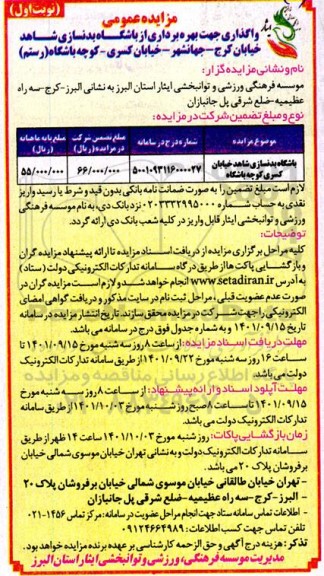 (نوبت اول)
مزایده عمومی
واگذاری جهت بهره برداری از باشگاه بدنسازی شاهد
خیابان کرج – جهانشهر – خیابان کسری – کوچه باشگاه (رستم)
نام و نشانی مزایده گزار:
موسسه فرهنگی ورزشی و توانبخشی ایثار استان البرز به نشانی البرز-کرج-سه راه
عظیمیه-ضلع شرقی پل جانبازان
نوع و مبلغ تضمین شرکت در مزایده:
موضوع مزایده
شماره درج در سامانه
مبلغ تضمین شرکت در مزایده (ریال)
مبلغ پایه ماهیانه (ریال)
باشگاه بدنسازی شاهد خیابان کسری کوچه باشگاه
5001093116000027
66/000/000
55/000/000
لازم است مبلغ تضمین را به صورت ضمانت نامه بانکی بدون قید و شرط یا رسید واریز
نقدی به حساب شماره 0203332995000 نزد بانک دی، به نام موسسه فرهنگی
ورزشی و توانبخشی ایثار قابل واریز در کلیه شعب بانک دی ارائه گردد.
توضیحات:
کلیه مراحل برگزاری مزایده از دریافت اسناد مزایده تا ارائه پیشنهاد مزایده گران
و بازگشایی پاکت ها از طریق درگاه سامانه تدارکات الکترونیکی دولت (ستاد)
به آدرس www.setadiran.ir انجام خواهد شد و لازم است مزایده گران در
صورت عدم عضویت قبلی، مراحل ثبت نام در سایت مذکور و دریافت گواهی امضای
الکترونیکی را جهت شرکت در مزایده محقق سازند. تاریخ انتشار مزایده در سامانه
تاریخ 1401/09/15 و به شماره جدول فوق درج در سامانه می باشد.
مهلت دریافت اسناد مزایده: از ساعت 8 روز سه شنبه مورخ 1401/09/15 تا
ساعت 16 روز سه شنبه مورخ 1401/09/22 از طریق سامانه تدارکات الکترونیک
دولت می باشد
مهلت آپلود اسناد و ارائه پیشنهاد: از ساعت 8 روز سه شنبه مورخ
1401/09/15 تا ساعت 8 صبح روز شنبه مورخ 1401/10/03 از طریق سامانه
تدارکات الکترونیک دولت می باشد.
زمان بازگشایی پاکات: روز شنبه مورخ 1401/10/03 ساعت 14 ظهر از طریق
سامانه تدارکات الکترونیک دولت و به نشانی تهران خیابان موسوی شمالی خیابان
برفروشان پلاک 20 می باشد.
- تهران خیابان طالقانی خیابان موسوی شمالی خیابان برفروشان پلاک 20
- البرز-کرج-سه راه عظیمیه-ضلع شرقی پل جانبازان
اطلاعات تماس سامانه ستاد جهت انجام مراحل عضویت در سامانه: مرکز تماس 1456-021
تلفن تماس جهت کسب اطلاعات: 09124664989
تذکر: هزینه درج آگهی و حق الزحمه کارشناسی بر عهده برنده مزایده خواهد بود.
مدیریت موسسه فرهنگی، ورزشی و توانبخشی ایثار استان البرز